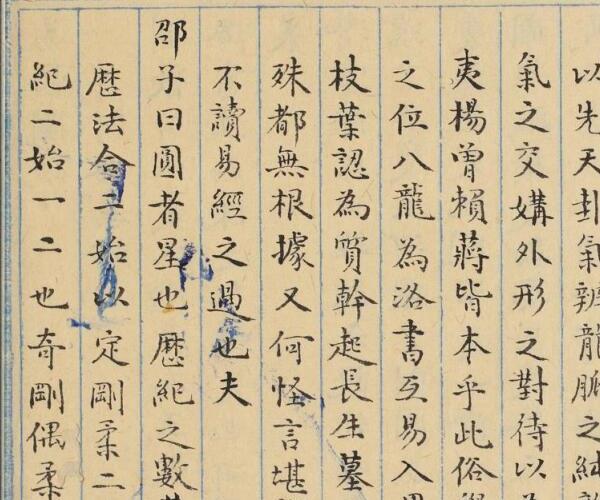 以先天卦氣辨龍脈之純
氣之交媾外形之對待以
夷楊曾賴蔣皆本乎此俗
之位八龍為洛書互易入
枝葉認為質幹起長生墓
殊都無根據又何怪言堪
不讀易經之過也夫
邵子曰圓者星也歷紀之數
歷法合二始以定剛柔二
紀二始一二也奇剛偶柔